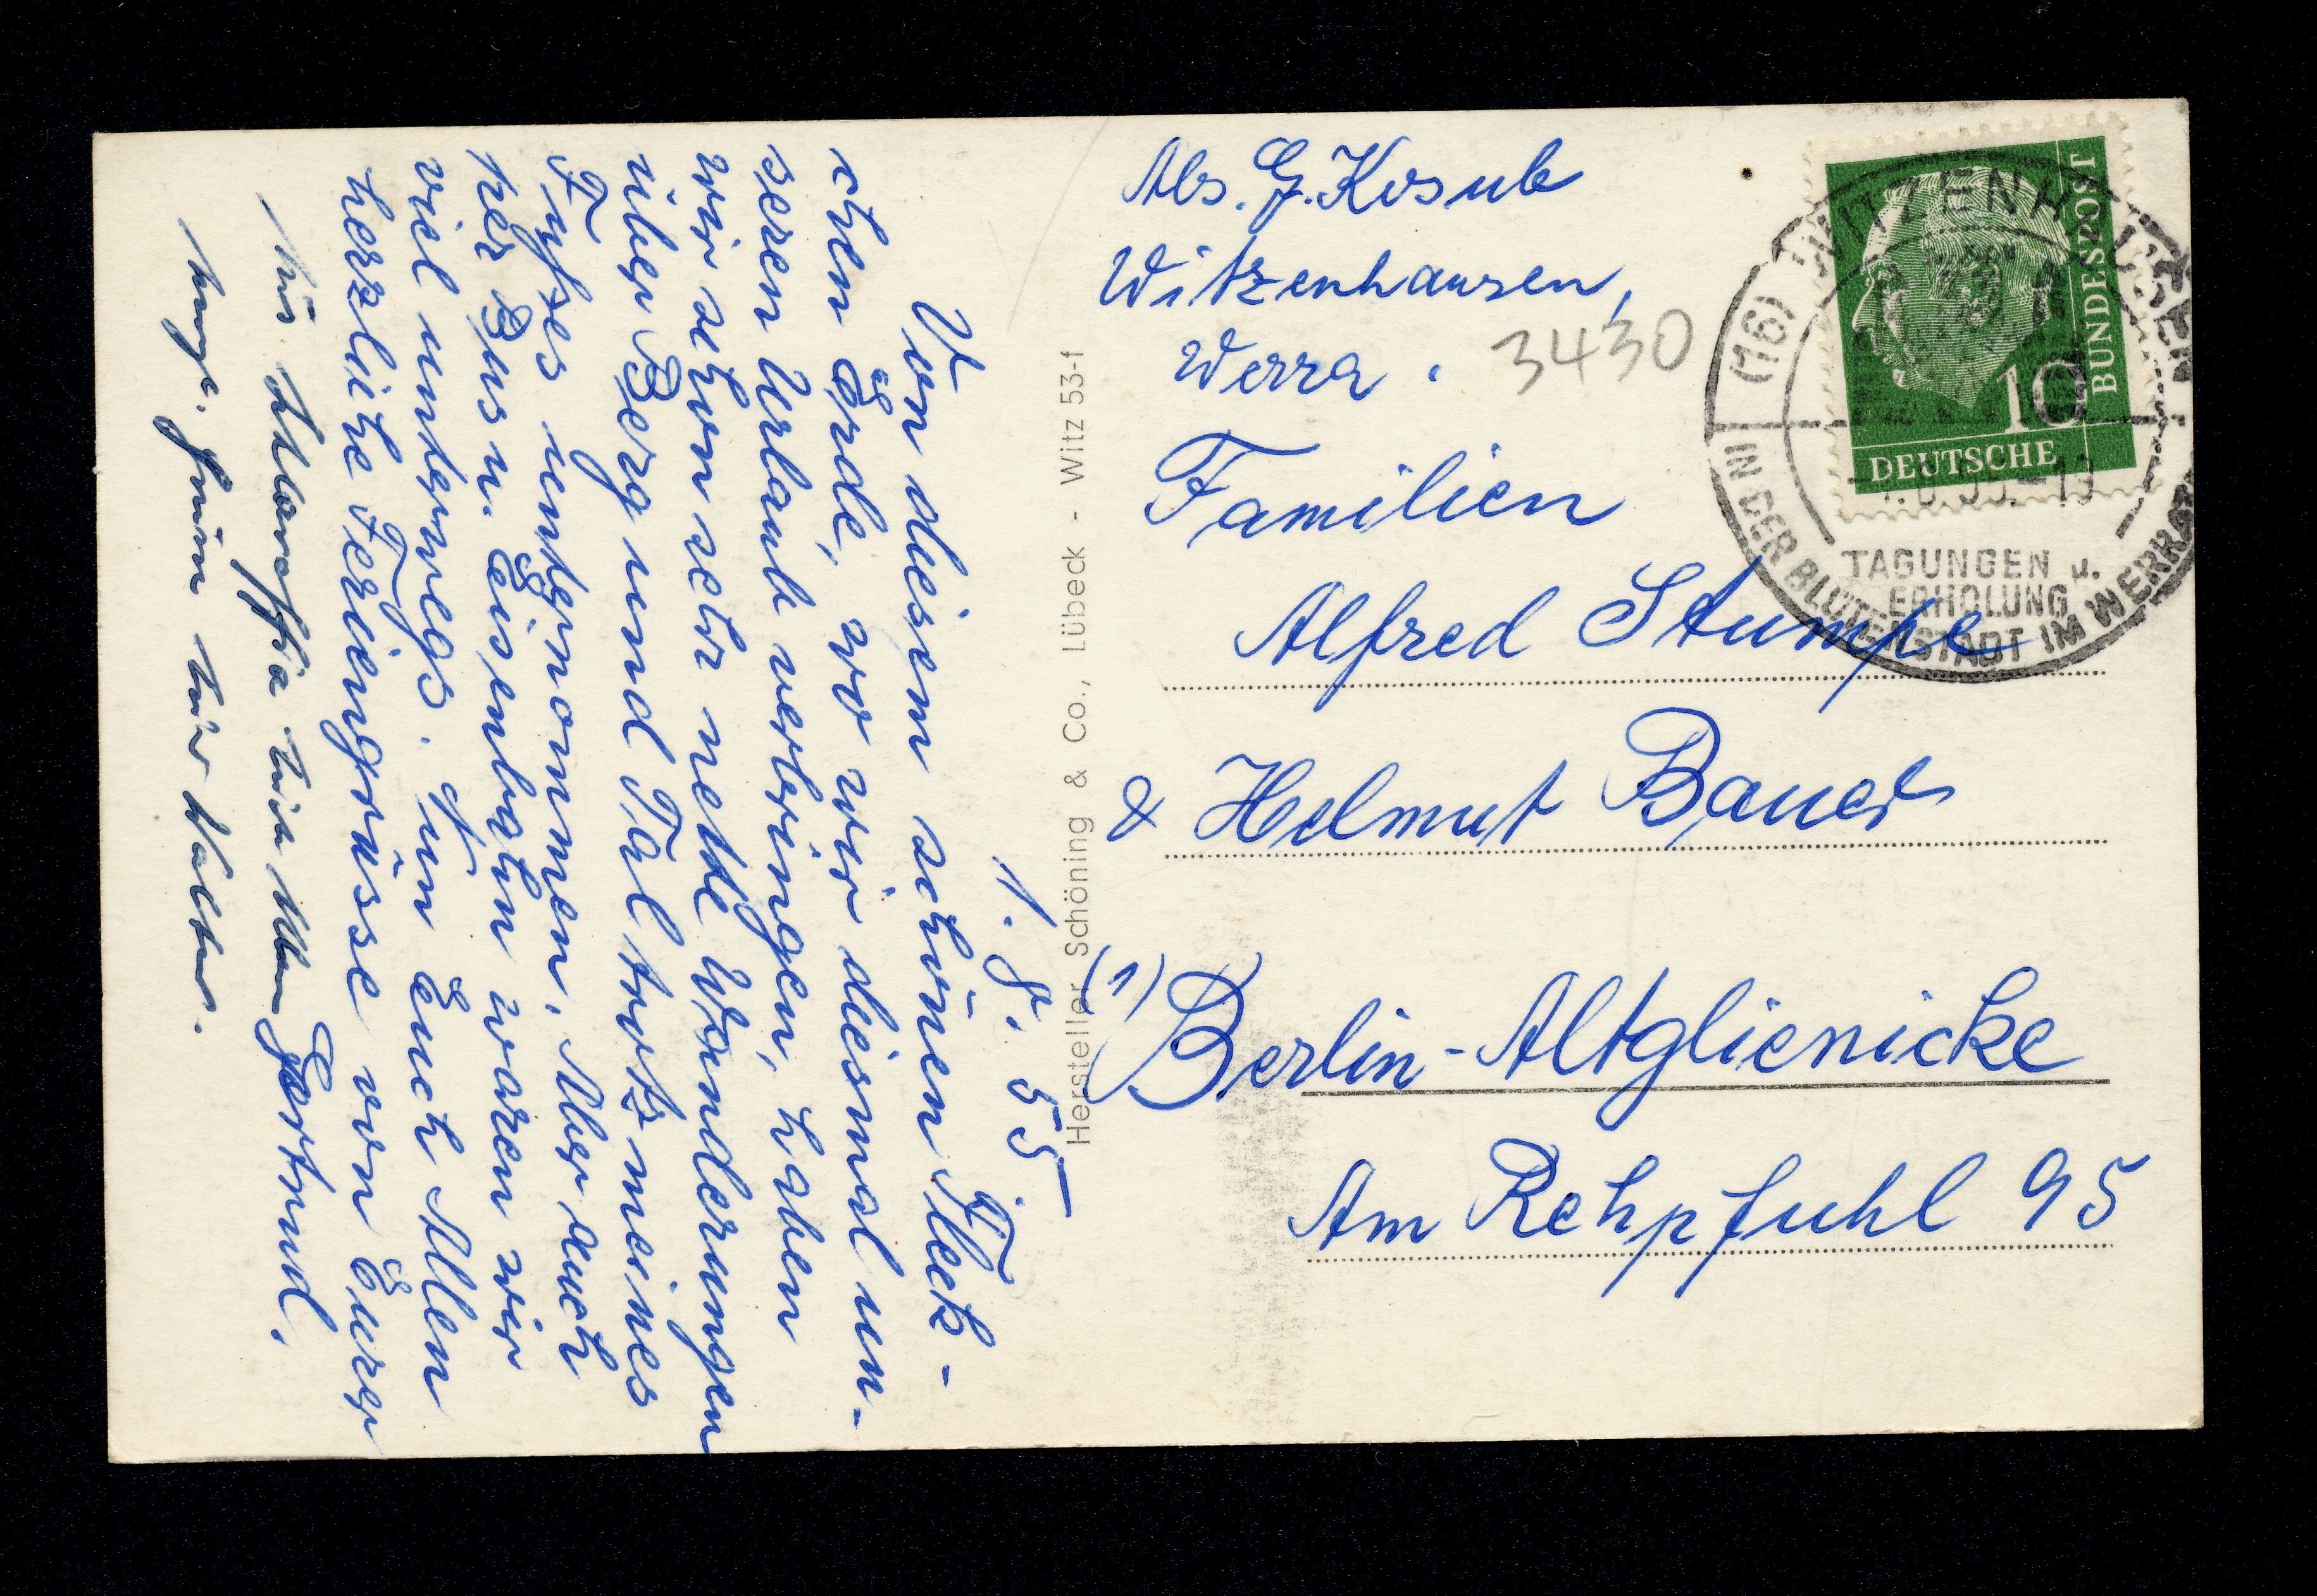 1. 8. 55
Von diesem schönen Fleck-
chen Erde, wo wir diesmal un-
seren Urlaub verbringen, haben
wir schon sehr nette Wanderungen
über Berg und Tal trotz meines
Fußes unternommen. Aber auch
per Bus u. Eisenbahn waren wir
viel unterwegs. Nun Euch Allen
herzliche Feriengrüsse von Eurer
Gertrud.
Walter.
Hersteller Schöning & Co., Lübeck - Witz 53-f
Abs. G. Kosub
Witzenhausen,
Werra.
3430
Familien
Alfred Stumpe
& Helmut Bauer
(1) Berlin-Altglienicke
Am Rehpfuhl 95
DEUTSCHE
BUNDESPOST
10
(16) WITZENHAUSEN
TAGUNGEN u.
ERHOLUNG
IN DER BLÜTENSTADT IM WERRATAL